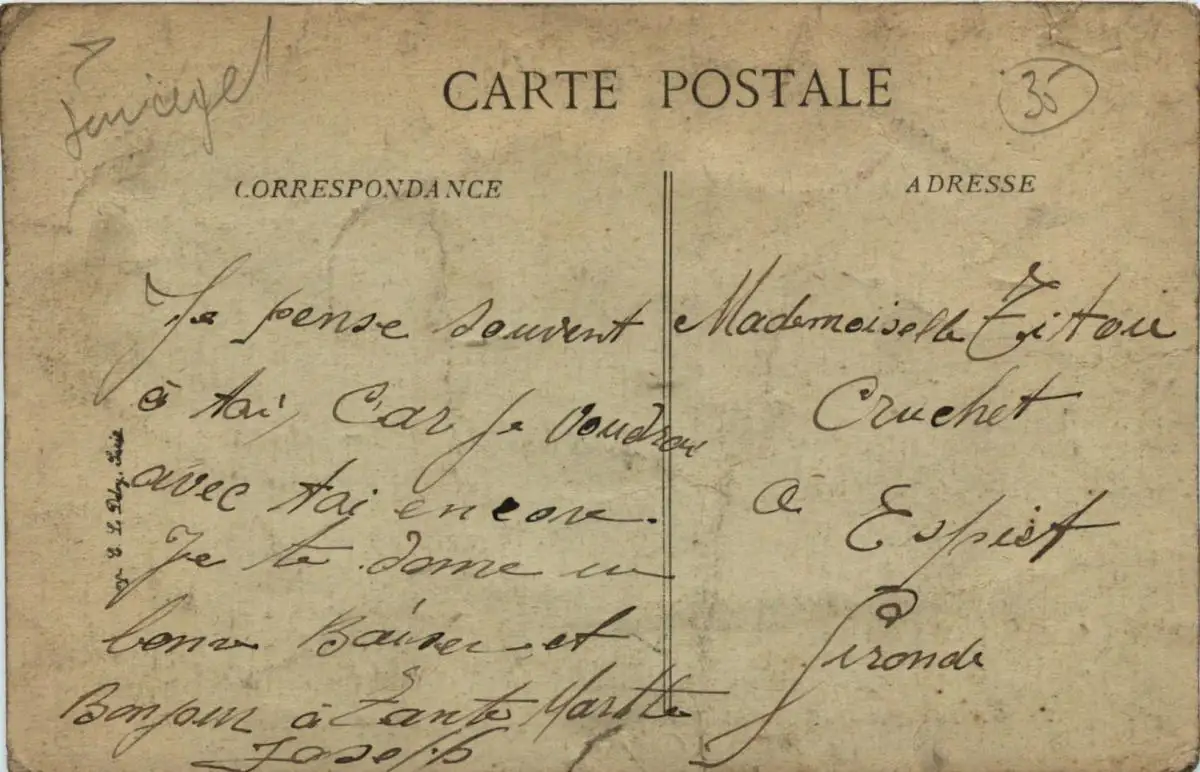 CARTE POSTALE
35
CORRESPONDANCE
ADRESSE
Je pense souvent
à toi, Car je voudrai
avec toi encore.
Je te donne un
bonne Baiser et
Bonjour à Tante Marthe
Joseph
Mademoiselle Titou
Cruchet
à Espiet
Gironde